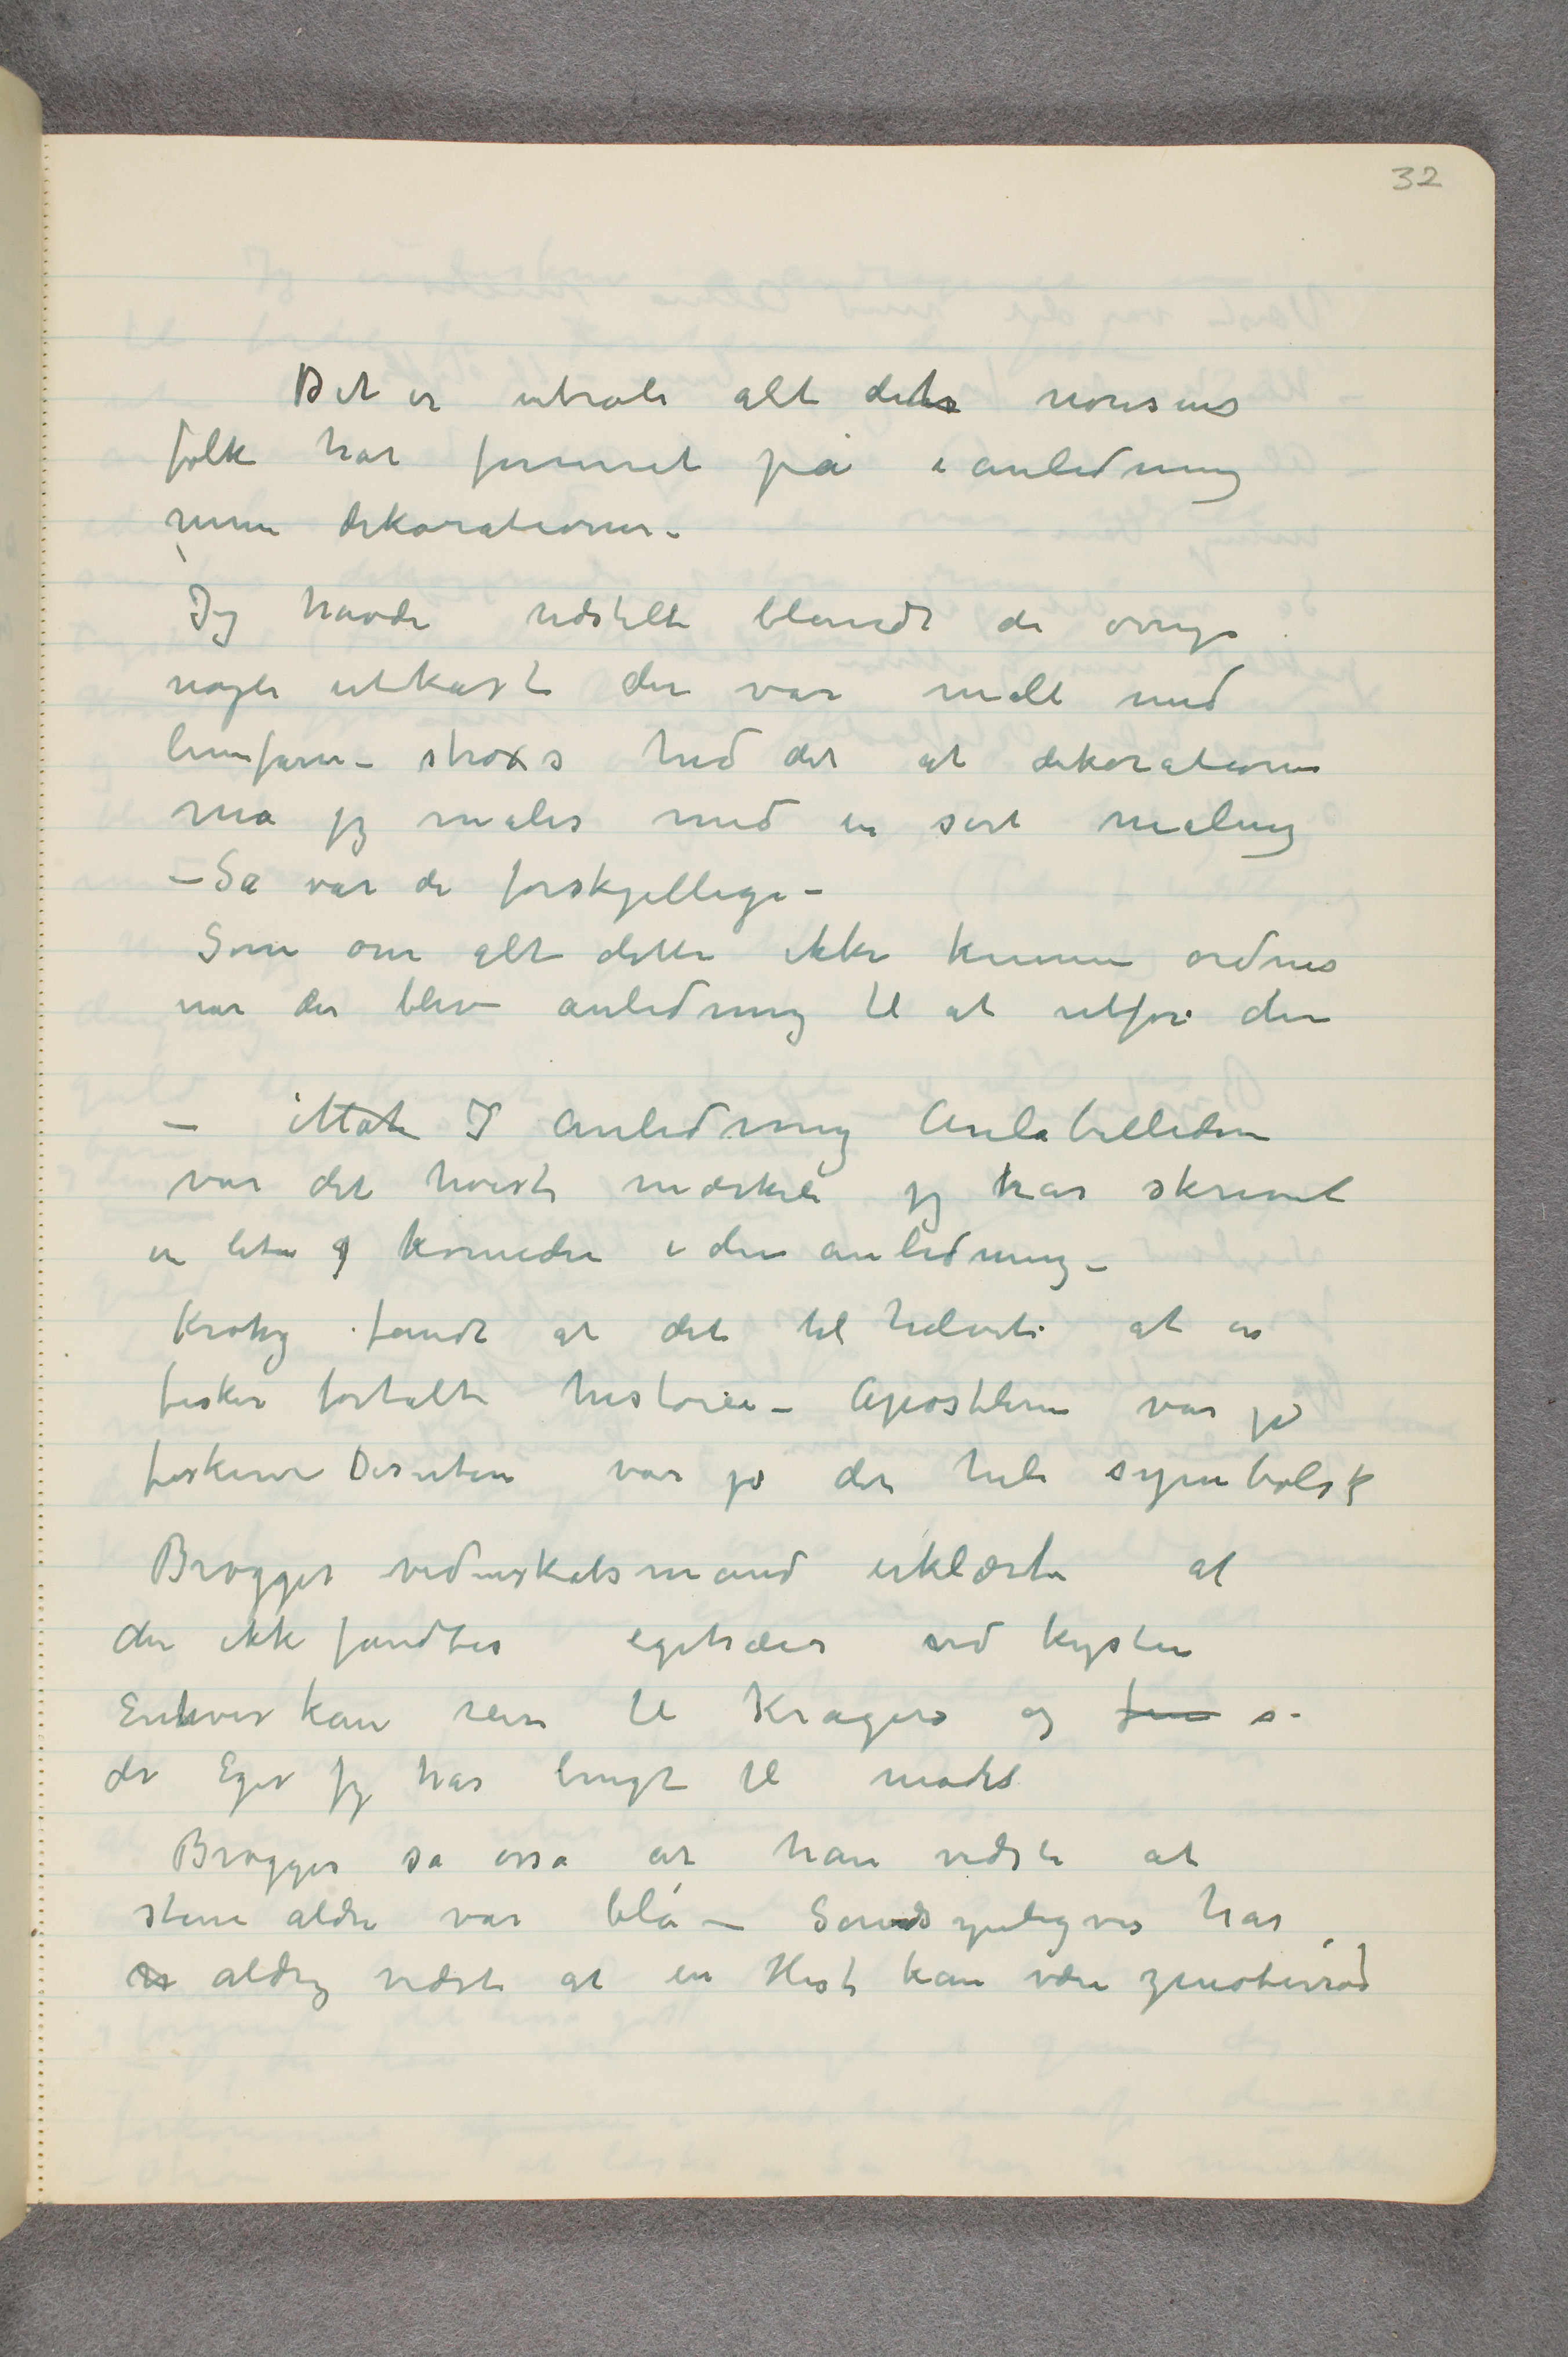 32
Det er utrole alt dette nonsens
folk har funnet på i anledning
mine dekorationer –
Jeg havde udstillt blandt de øvrige
nogle utkast der var malt med
limfarve – strax hed det at dekorationene
må jeg males med en sort maling
– Så var de forskjellige –
Som om alt dette ikke kunne ordnes
når der blev anledning til at utføre dem
– I Anledning Aulabilledene
var det høist mærkeli jeg har skrevet
en liten komedie i den anledning –
Krohg fandt at det til helvete at en
fisker fortalte historie – Apostlene var jo
fiskere Desuten var jo det hele symbolsk
Brøgger videnskabsmand erklærte at
der ikke fandtes egetræer ved kysten
Enhver kan reise til Kragerø og fin se
de Eger jeg har brugt til model
Brøgger sa osså at han vidste at
stene aldri var blå – Sandsynligvis har
aldrig vidst at en Hest kan være zinoberrød